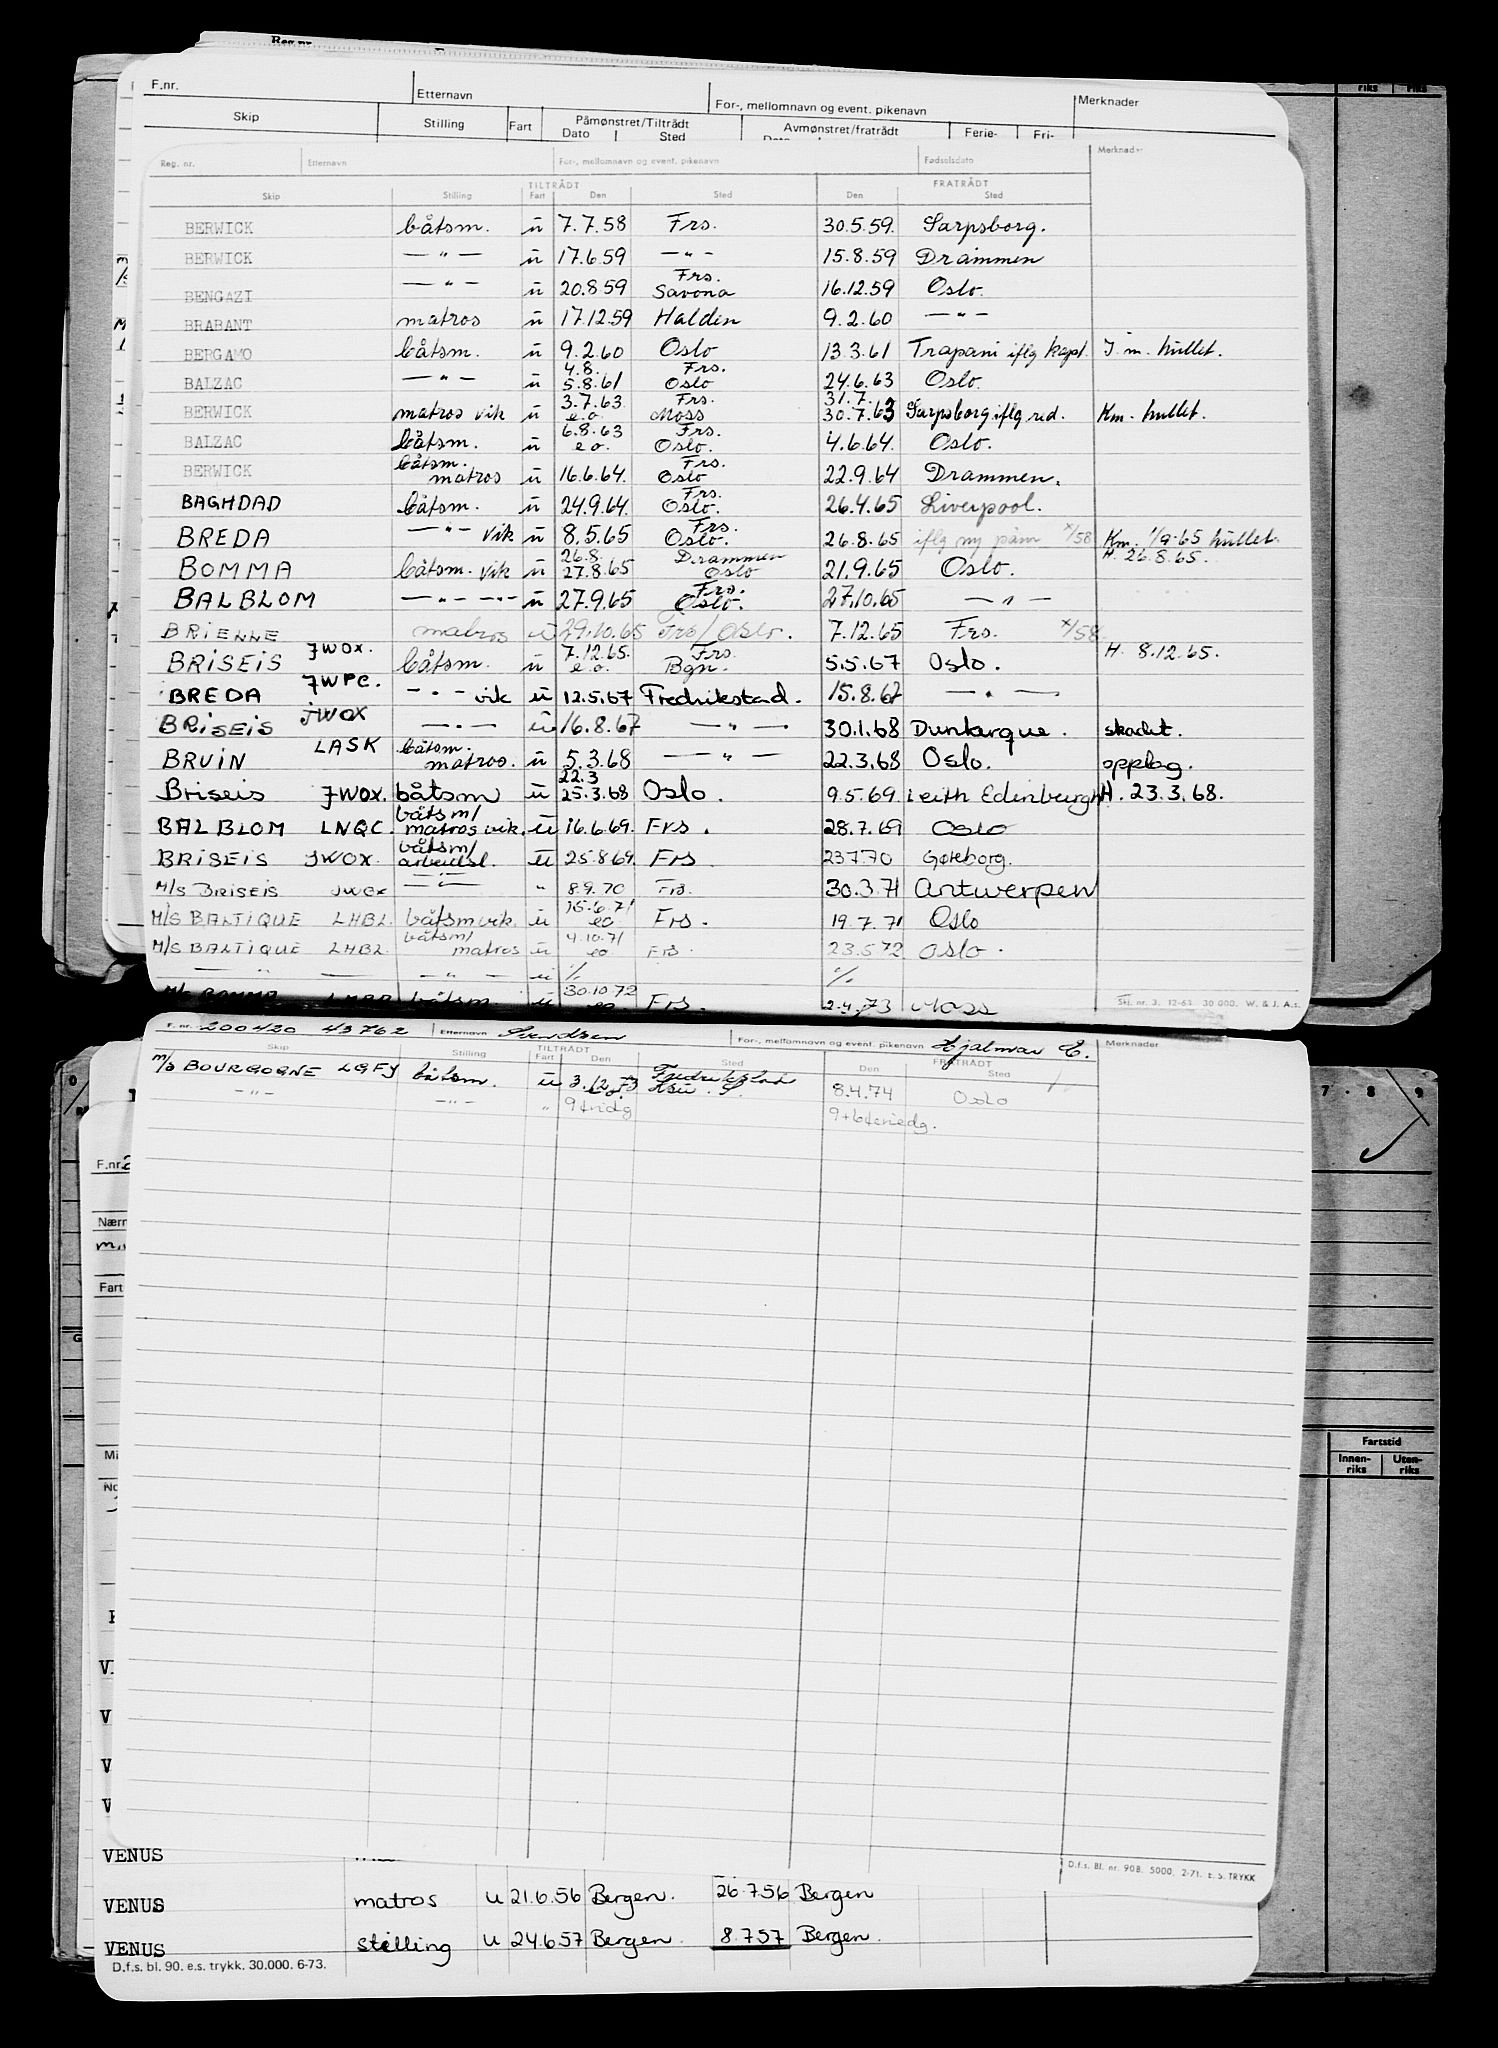 Reg.nr.
F.nr. Etternavn For-, mellomnavn og event. pikenavn Merknader
Skip Stilling Fart Påmønstret/Tiltrådt Avmønstret/fratrådt Ferie- Fri-
Dato Sted
Reg. nr. Etternavn For-, mellomnavn og event. pikenavn Fødselsdato Merknader
TILTRÅDT FRATRÅDT
Skip Stilling Fart Den Sted Den Sted
BERWICK båtsm. u 7.7.58 Frs. 30.5.59. Sarpsborg.
BERWICK — " — u 17.6.59 — " — 15.8.59 Drammen
BENGAZI — " — u 20.8.59 Frs. Savona 16.12.59 Oslo.
BRABANT matros u 17.12.59 Halden 9.2.60 — " —
BERGAMO båtsm. u 9.2.60 Oslo 13.3.61 Trapani iflg kapt. I.m. hullet.
BALZAC — " — u 4.8. 5.8.61 Frs. Oslo 24.6.63 Oslo.
BERWICK matros vik u 3.7.63 e.o. Frs. Moss 31.7. 30.7.63 Sarpsborg iflg red. Km. hullet.
BALZAC båtsm. u 6.8.63 e.o. Frs. Oslo. 4.6.64. Oslo.
BERWICK båtsm. matros u 16.6.64. Frs. Oslo 22.9.64 Drammen.
BAGHDAD båtsm. u 24.9.64. Frs. Oslo. 26.4.65 Liverpool.
BREDA — " — vik u 8.5.65 Frs. Oslo. 26.8.65 iflg ny påm x/58 Km. 1/9-65 hullet.
BOMMA båtsm. vik u 26.8. 27.8.65 Drammen Oslo 21.9.65 Oslo. H. 26.8.65.
BALBLOM — " — — " — u 27.9.65 Frs. Oslo. 27.10.65 — " —
BRIENNE matros u 29.10.65 Frs/Oslo. 7.12.65 Frs. x/58
BRISEIS JWOX. båtsm. u 7.12.65. e.o. Frs. Bgn. 5.5.67 Oslo. H. 8.12.65.
BREDA JWPC. — " — vik u 12.5.67 Fredrikstad. 15.8.67 — " —
BRISEIS JWOX — " — u 16.8.67 — " — 30.1.68 Dunkerque. skadet.
BRUIN LASK båtsm. matros. u 5.3.68 — " — 22.3.68 Oslo. opplag.
Briseis JWOX. båtsm u 22.3 25.3.68 Oslo. 9.5.69. Leith Edinburgh H. 23.3.68.
BALBLOM LNQC. båtsm/ matros vik. u 16.6.69. Frs. 28.7.69 Oslo
BRISEIS JWOX. båtsm/ arbeidsl. u 25.8.69. Frs. 23.7.70 Gøteborg.
M/S BRISEIS JWOX — " — " 8.9.70 Frs. 30.3.71 Antwerpen
M/S BALTIQUE LHBL. båtsm vik. u 15.6.71 eo Frs. 19.7.71 Oslo
M/S BALTIQUE LHBL. båtsm/ matros u 4.10.71 eo Frs. 23.5.72 Oslo.
— " — — " — u % %
M/S BOMMA båtsm. u 30.10.72 eo Frs. 2.4.73 Moss
Skj. nr. 3. 12-63. 30 000. W. & J. A.s.
F. nr. 200420 43762 Etternavn Svendsen For-, mellomnavn og event. pikenavn Hjalmar E. Merknader
TILTRÅDT FRATRÅDT
Skip Stilling Fart Den Sted Den Sted
M/S BOURGOGNE LGFY båtsm. u 3.12.73 Fredrikstad 8.4.74 Oslo
— " — — " — "
7 . 8 . 9
F.nr.
Fart
Fartstid
Innen- riks Uten- riks
VENUS
VENUS matros u 21.6.56 Bergen. 26.7.56 Bergen
VENUS stilling u 24.6.57 Bergen. 8.7.57 Bergen.
D.f.s. Bl. nr. 90B. 5000. 2-71. E.S. TRYKK
D.f.s. bl. 90. e.s. trykk. 30.000. 6-73.